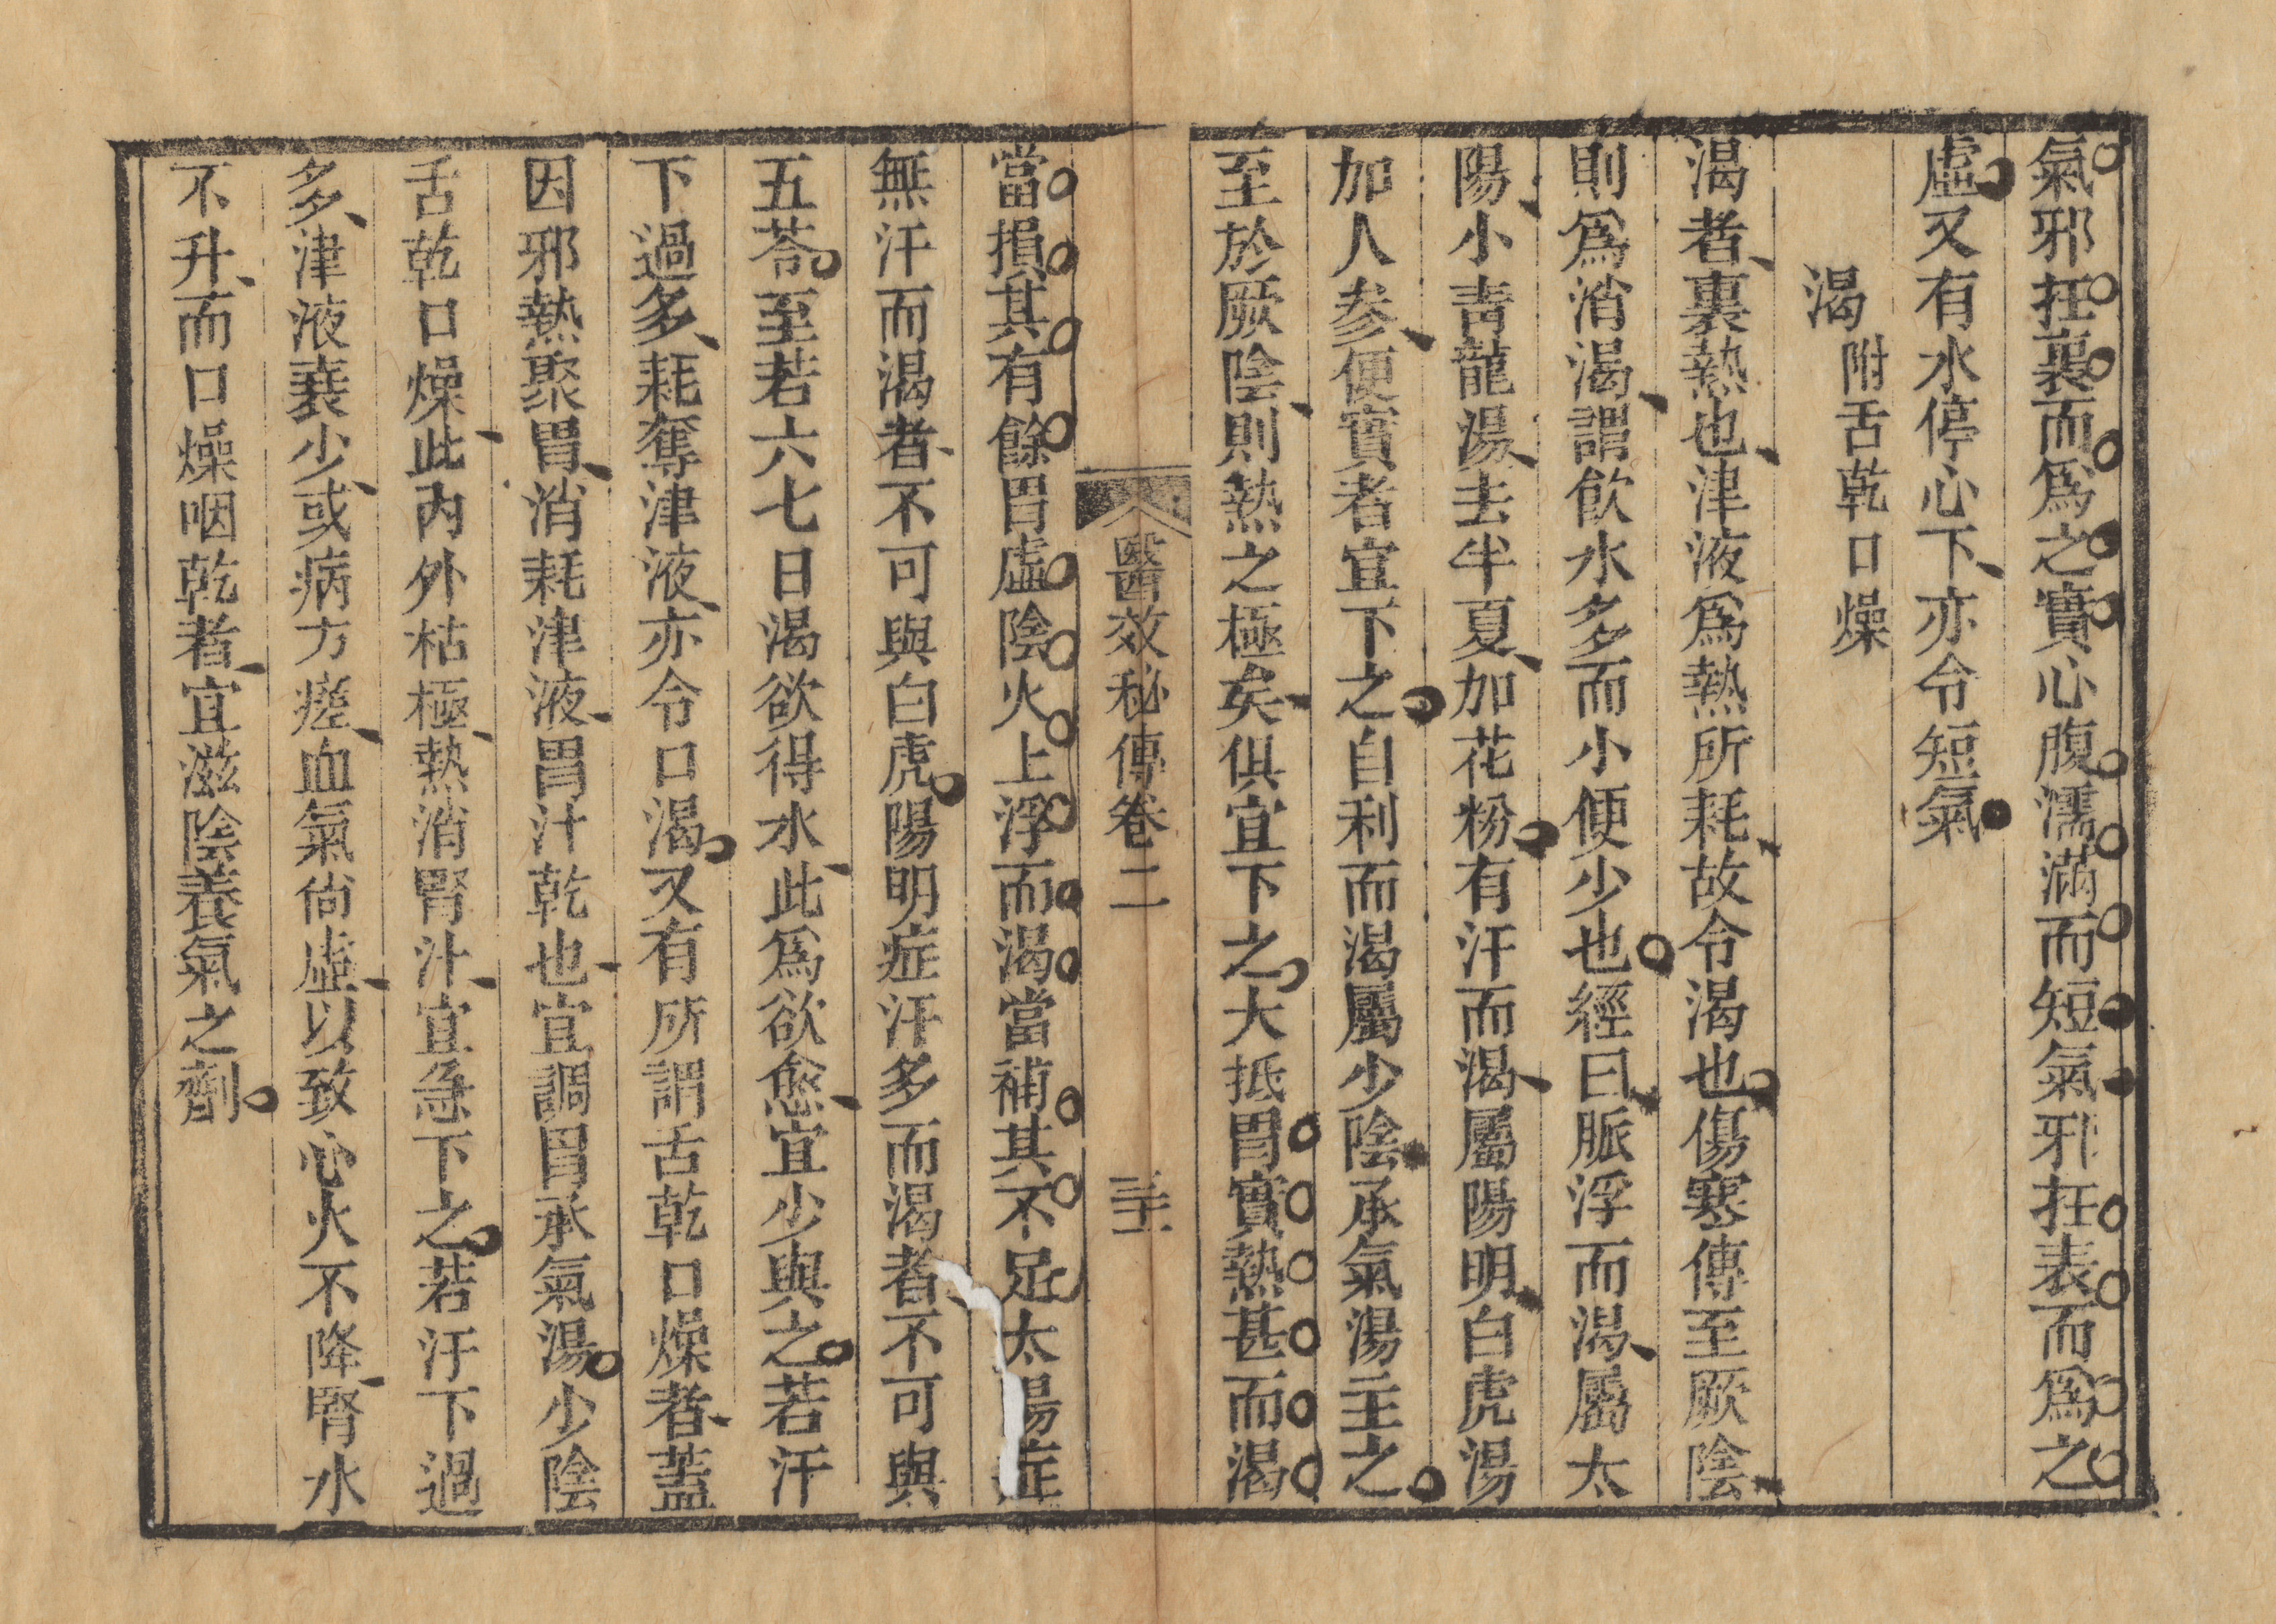 氣邪在裏而爲之實心腹濡滿而短氣邪在表而爲之
虛又有水停心下亦令短氣
渴附舌乾口燥
渴者裏熱也津液爲熱所耗故令渴也傷寒傳至厥陰
則爲消渴謂飮水多而小便少也經曰脈浮而渴屬太
陽小青龍湯去半夏加花粉有汗而渴屬陽明白虎湯
加人參便實者宜下之自利而渴屬少陰承氣湯主之
至於厥陰則熱之極矣俱宜下之大抵胃實熱甚而渴
醫效秘傳卷二
當損其有餘胃虛陰火上浮而渴當補其不足太陽症
無汗而渴者不可與白虎陽明症汗多而渴者不可與
五苓至若六七日渴欲得水此爲欲愈宜少與之若汗
下過多耗奪津液亦令口渴又有所謂舌乾口燥者蓋
因邪熱聚胃消耗津液胃汁乾也宜調胃承氣湯少陰
舌乾口燥此內外枯極熱消腎汁宜急下之若汗下過
多津液衰少或病方瘥血氣尙虛以致心火不降腎水
不升而口燥咽乾者宜滋陰養氣之劑